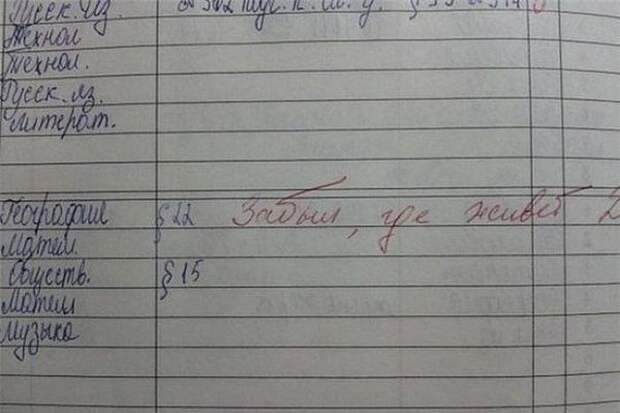 Русск. яз.
Технол
Технол.
Русск. яз.
Литерат.
География §22 Забыл, где живёт 2
Матем.
Обществ. §15
Матем
Музыка